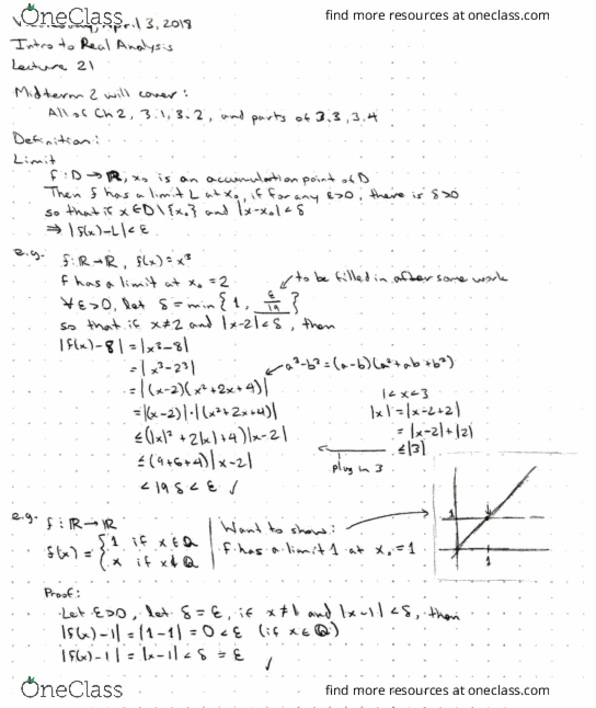 OneClass
find more resources at oneclass.com
April 3, 2018
Intro to Real Analysis
Lecture 21
Midterm 2 will cover:
All of Ch 2, 3.1, 3.2, and parts of 3.3, 3.4
Definition:
Limit
f: D→ℝ, x₀ is an accumulation point of D
Then f has a limit L at x₀, if for any ε>0, there is δ>0
so that if x∈D\{x₀} and |x-x₀|<δ
⇒ |f(x)-L|<ε
e.g. f: ℝ→ℝ, f(x)=x³
f has a limit at x₀=2
to be filled in after some work
∀ε>0, let δ=min{1, ε/19}
so that if x≠2 and |x-2|<δ, then
|f(x)-8|=|x³-8|
=|x³-2³|
a³-b³=(a-b)(a²+ab+b²)
=|(x-2)(x²+2x+4)|
1<x<3
=|(x-2)|·|(x²+2x+4)|
|x|=|x-2+2|
≤(|x|²+2|x|+4)|x-2|
=|x-2|+|2|
≤|3|
≤(9+6+4)|x-2|
plug in 3
<19δ<ε ✓
e.g. f: ℝ→ℝ
f(x)={1 if x∈ℚ
{x if x∉ℚ
Want to show:
f has a limit 1 at x₀=1
1
1
Proof:
Let ε>0, let δ=ε, if x≠1 and |x-1|<δ, then
|f(x)-1|=|1-1|=0<ε (if x∈ℚ)
|f(x)-1|=|x-1|<δ=ε
✓
OneClass
find more resources at oneclass.com